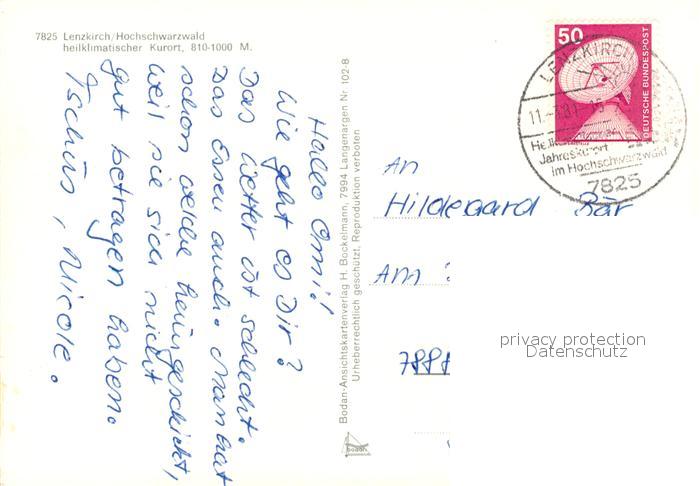 7825 Lenzkirch/Hochschwarzwald
heilklimatischer Kurort, 810-1000 M.
Hallo Omi!
Wie geht es Dir?
Das Wetter ist schlecht.
Das Essen auch. Man hat
schon welche heimgeschickt,
weil sie sich nicht
gut betragen haben.
Tschüs, Nicole.
Bodan-Ansichtskartenverlag H. Bockelmann, 7994 Langenargen Nr 102-8
Urheberrechtlich geschützt, Reproduktion verboten
bodan
50
DEUTSCHE BUNDESPOST
LENZKIRCH
Jahreskurort
im Hochschwarzwald
7825
An
Hildegard Bär
Am
privacy protection
Datenschutz